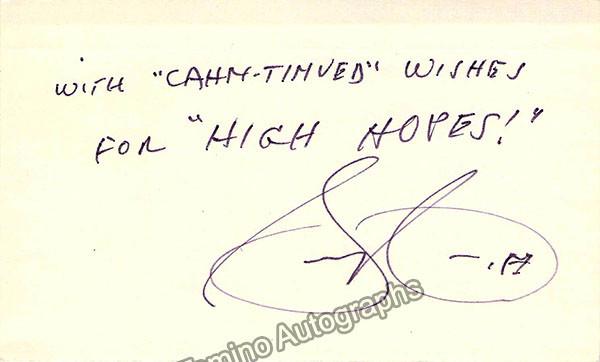 WITH "CAHN-TINUED" WISHES
FOR "HIGH HOPES!"
Tamino Autographs